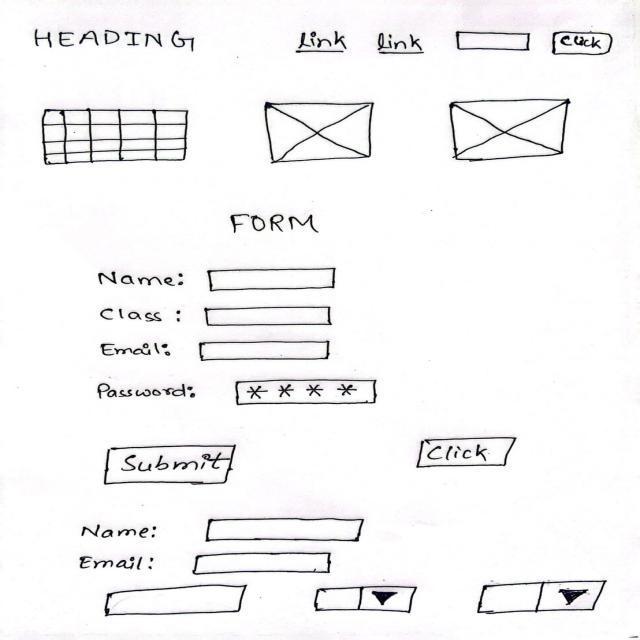 HEADING link link click
FORM
Name:
Class :
Email:
Password: * * * *
Submit Click
Name:
Email: